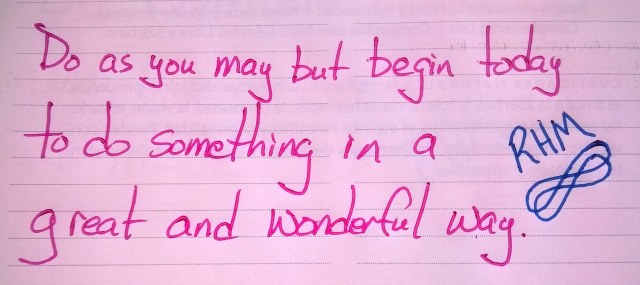 Do as you may but begin today
to do something in a
RHM
great and wonderful way.